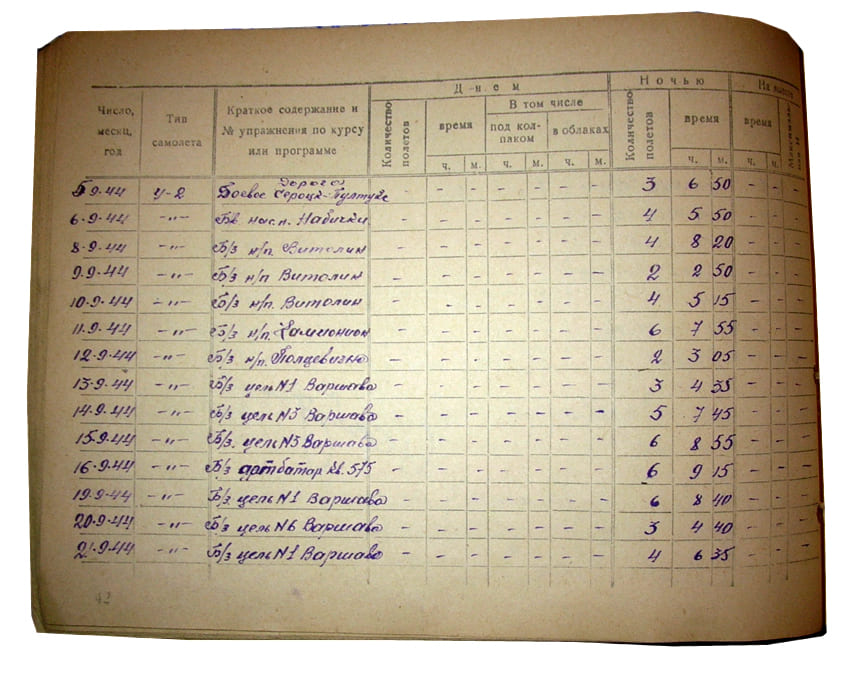 Днем Ночью На высоте
Число, месяц, год Тип самолета Краткое содержание и № упражнения по курсу или программе Количество полетов время В том числе Количество полетов время время
под колпаком в облаках
ч. м. ч. м. ч. м. ч. м. ч. м.
5.9.44 У-2 Боевое дорога Сероцк-Пултуск - - - - - - - 3 6 50 - - -
6.9.44 -"- Бв нас.п. - - - - - - - 4 5 50 - - -
8.9.44 -"- Б/з н/п. Витолин - - - - - - - 4 8 20 - - -
9.9.44 -"- Б/з н/п Витолин - - - - - - - 2 2 50 - - -
10.9.44 -"- Б/з н/п. Витолин - - - - - - - 4 5 15 - - -
11.9.44 -"- Б/з н/п. - - - - - - - 6 7 55 - - -
12.9.44 -"- Б/з н/п. - - - - - - - 2 3 05 - - -
13.9.44 -"- Б/з цель N1 Варшава - - - - - - - 3 4 35 - - -
14.9.44 -"- Б/з цель N3 Варшава - - - - - - - 5 7 45 - - -
15.9.44 -"- Б/з. цель N3 Варшава - - - - - - - 6 8 55 - - -
16.9.44 -"- Б/з артбатар кв. 575 - - - - - - - 6 9 15 - - -
19.9.44 -"- Б/з цель N1 Варшава - - - - - - - 6 8 40 - - -
20.9.44 -"- Б/з цель N6 Варшава - - - - - - - 3 4 40 - - -
21.9.44 -"- Б/з цель N1 Варшава - - - - - - - 4 6 35 - - -
42